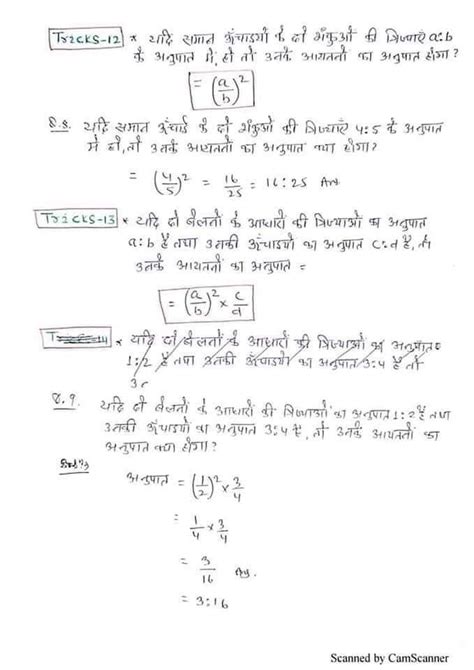 Tricks-12 * यदि समान ऊँचाइयों के दो शंकुओं की त्रिज्याएँ a:b
के अनुपात में हो तो उनके आयतनों का अनुपात होगा?
= (a/b)²
Q.8. यदि समान ऊँचाई के दो शंकुओं की त्रिज्याएँ 4:5 के अनुपात
में हो, तो उनके आयतनों का अनुपात क्या होगा?
= (4/5)² = 16/25 = 16:25 Ans
Tricks-13 * यदि दो बेलनों के आधारों की त्रिज्याओं का अनुपात
a:b है तथा उनकी ऊँचाइयों का अनुपात c:d है, तो
उनके आयतनों का अनुपात =
= (a/b)² × c/d
Tricks-14 * यदि दो बेलनों के आधारों की त्रिज्याओं का अनुपात
1:2 है तथा उनकी ऊँचाइयों का अनुपात 3:4 है तो
Q.9. यदि दो बेलनों के आधारों की त्रिज्याओं का अनुपात 1:2 है तथा
उनकी ऊँचाइयों का अनुपात 3:4 है, तो उनके आयतनों का
अनुपात क्या होगा?
अनुपात = (1/2)² × 3/4
= 1/4 × 3/4
= 3/16 Ans.
= 3:16
Scanned by CamScanner